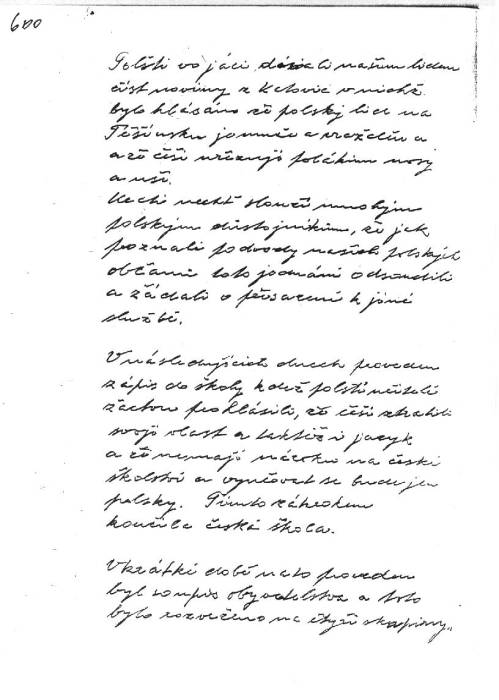 600
Polští vojáci dávali našim lidem
číst noviny z Katovic v nichž
bylo hlásáno že polský lid na
Těšínsku je mučen a vražděn a
a že češi uřezují polákům nosy
a uši.
Ke cti nechť slouží mnohým
polským důstojníkům, že jak
poznali podvody našich polských
občanů toto jednání odsoudili
a žádali o přesazení k jiné
službě.
V následujících dnech proveden
zápis do školy kdež polští učitelé
žactvu prohlásili, že češi ztratili
svoji vlast a taktéž i jazyk
a že nemají nároku na české
školství a vyučovat se bude jen
polsky. Tímto zákrokem
končila česká škola.
V krátké době na to proveden
byl soupis obyvatelstva a toto
bylo rozvrženo na čtyři skupiny,,